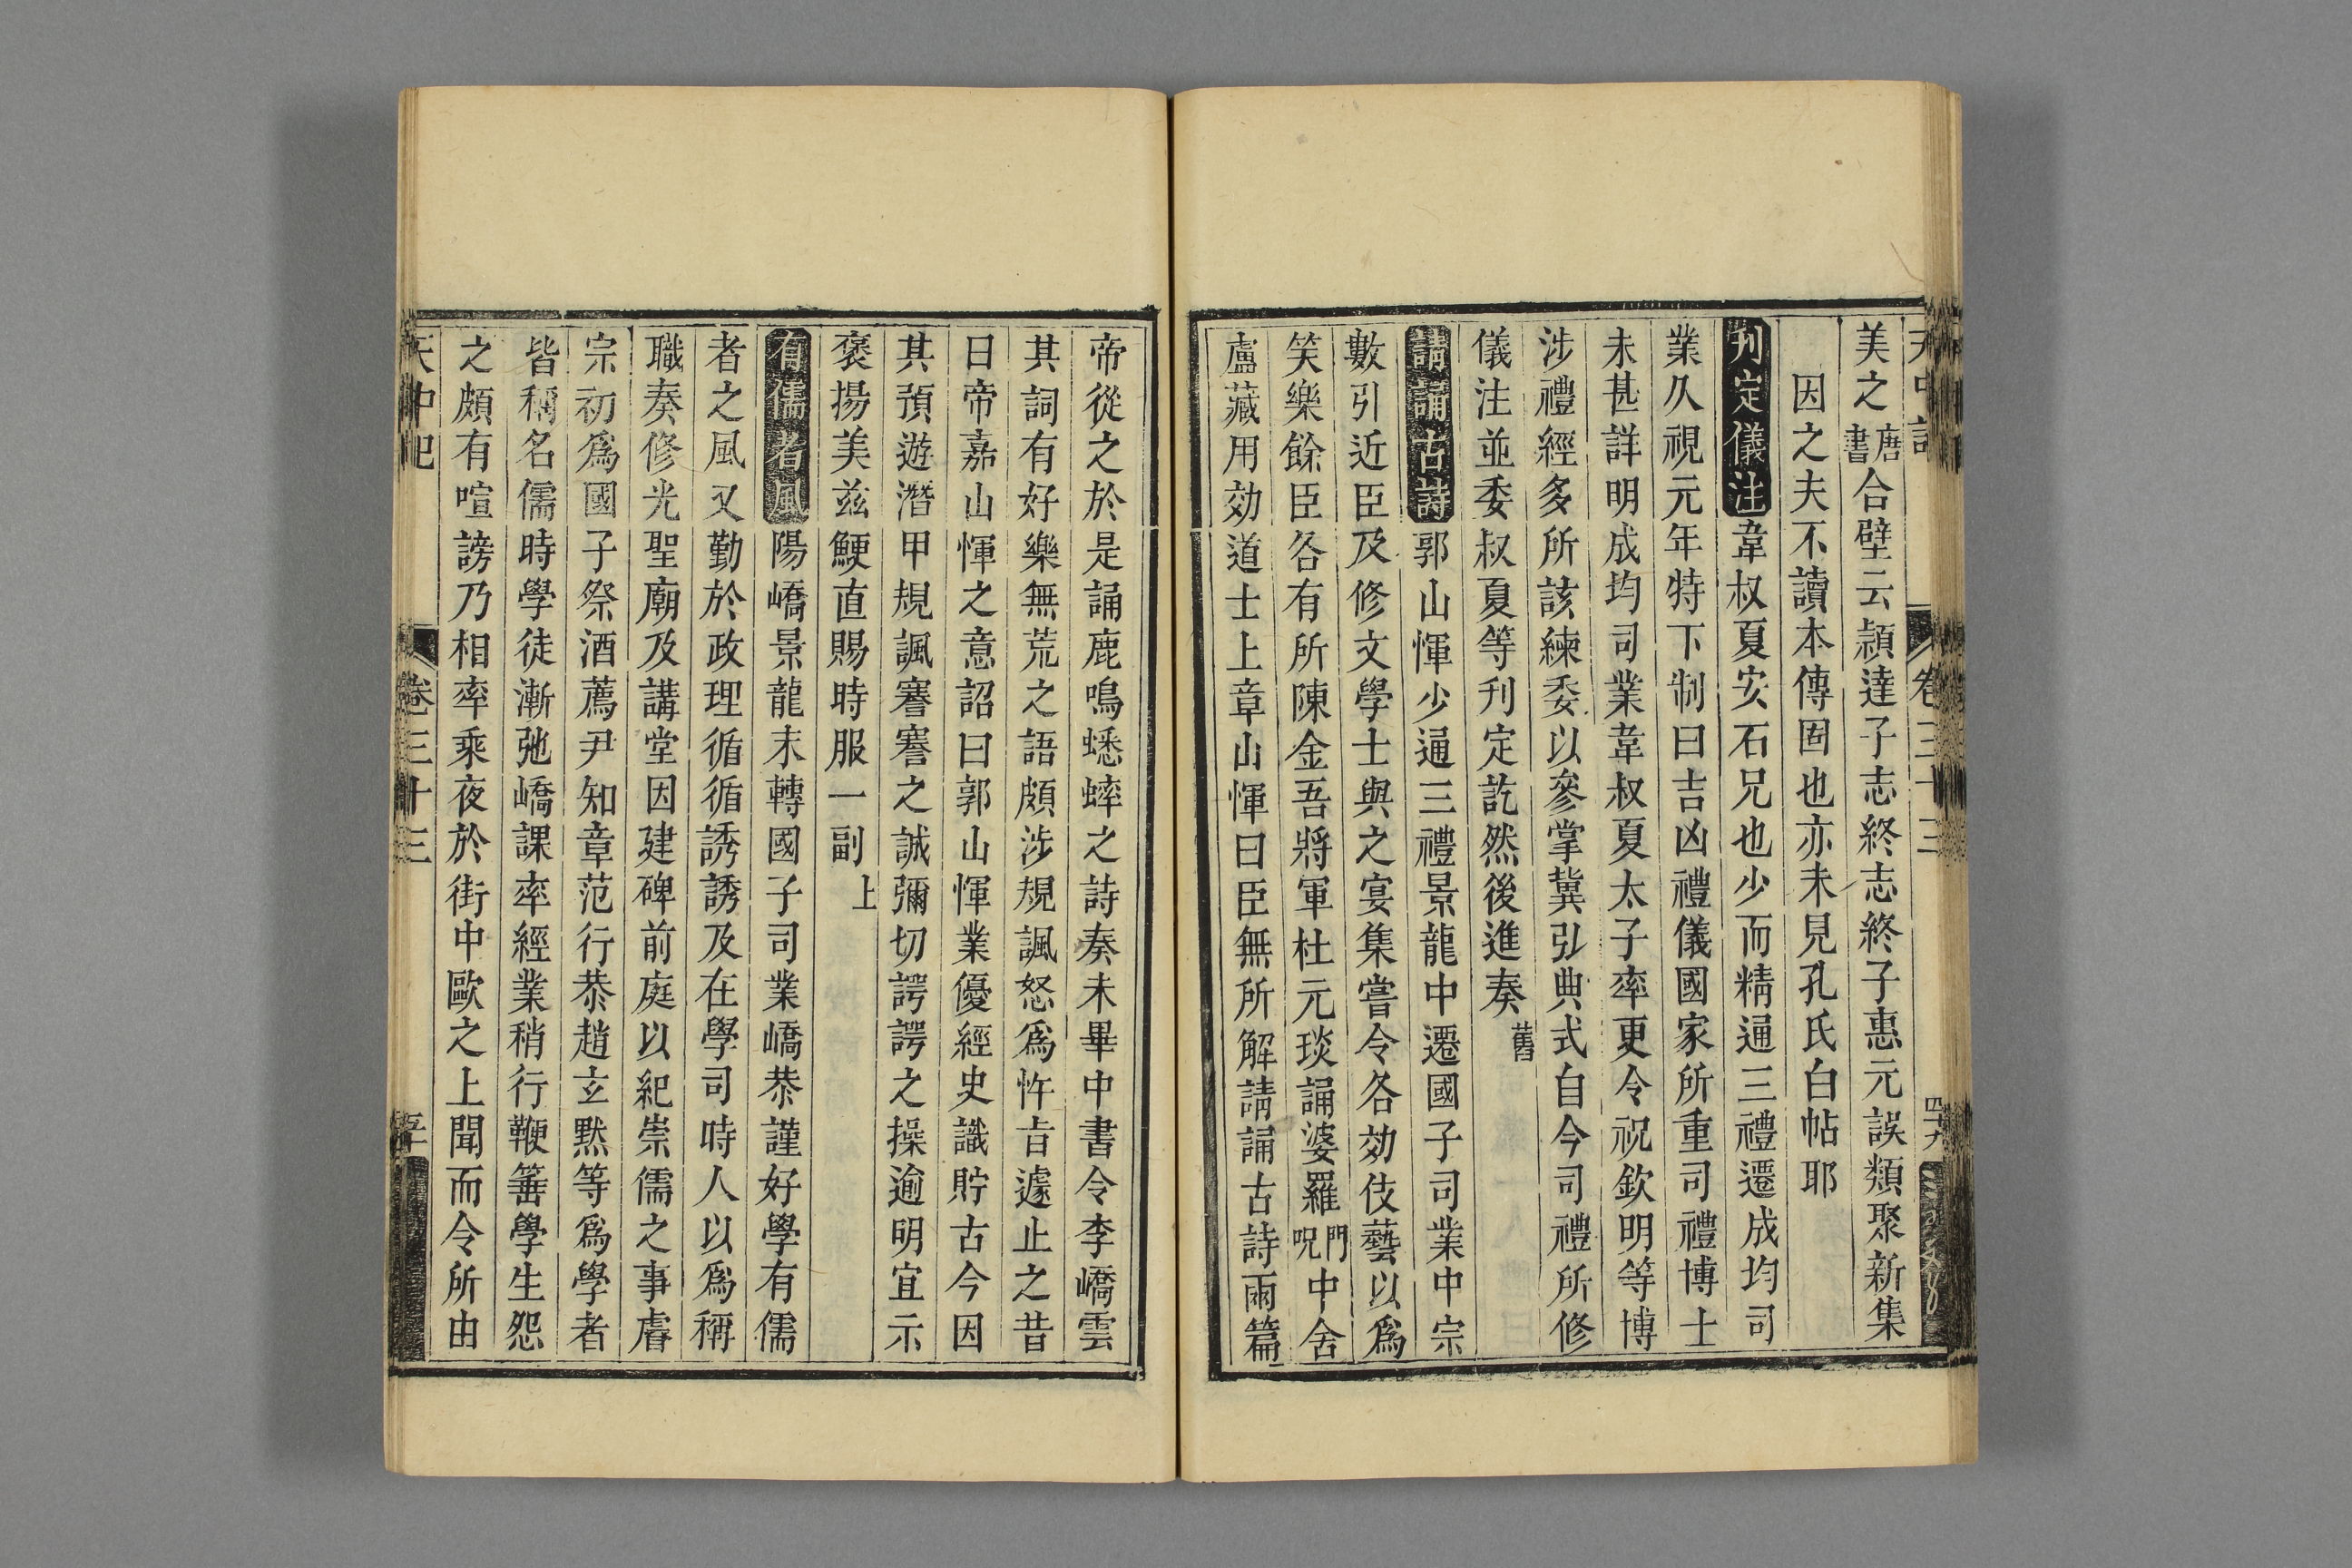 天中記
卷三十三
四十九
美之唐書合壁云頴達子志終志終子惠元誤類聚新集
因之夫不讀本傳固也亦未見孔氏白帖耶
刋定儀注韋叔夏安石兄也少而精通三禮遷成均司
業久視元年特下制曰吉凶禮儀國家所重司禮博士
未甚詳明成均司業韋叔夏太子率更令祝欽明等博
涉禮經多所該練委以參掌冀弘典式自今司禮所修
儀注並委叔夏等刋定訖然後進奏舊
請誦古詩郭山惲少通三禮景龍中遷國子司業中宗
數引近臣及修文學士與之宴集嘗令各効伎藝以爲
笑樂餘臣各有所陳金吾將軍杜元琰誦婆羅門呪中舍
盧藏用効道士上章山惲曰臣無所解請誦古詩兩篇
帝從之於是誦鹿鳴蟋蟀之詩奏未畢中書令李嶠雲
其詞有好樂無荒之語頗涉規諷怒爲忤旨遽止之昔
日帝嘉山惲之意詔曰郭山惲業優經史識貯古今因
其預遊潛甲規諷謇謇之誠彌切諤諤之操逾明宜示
褒揚美兹鯁直賜時服一副上
有儒者風陽嶠景龍末轉國子司業嶠恭謹好學有儒
者之風又勤於政理循循誘誘及在學司時人以爲稱
職奏修光聖廟及講堂因建碑前庭以紀崇儒之事睿
宗初爲國子祭酒薦尹知章范行恭趙玄黙等爲學者
皆稱名儒時學徒漸弛嶠課率經業稍行鞭箠學生怨
之頗有喧謗乃相率乘夜於街中毆之上聞而令所由
天中記
卷三十三
五十